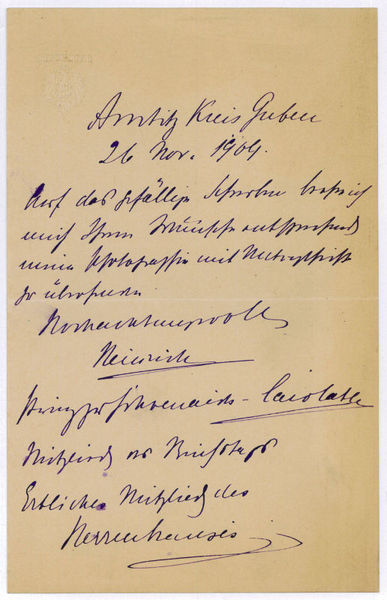 Amtitz Kreis Guben
26 Nov. 1904.
Auf das gefällige Schreiben beehre ich
mich Ihrem Wunsche entsprechend
meine Photographie mit Unterschrift
zu übersenden
Hochachtungsvoll
Heinrich
Prinz zu Schoenaich-Carolath
Mitglied des Reichstags
Erbliches Mitglied des
Herrenhauses